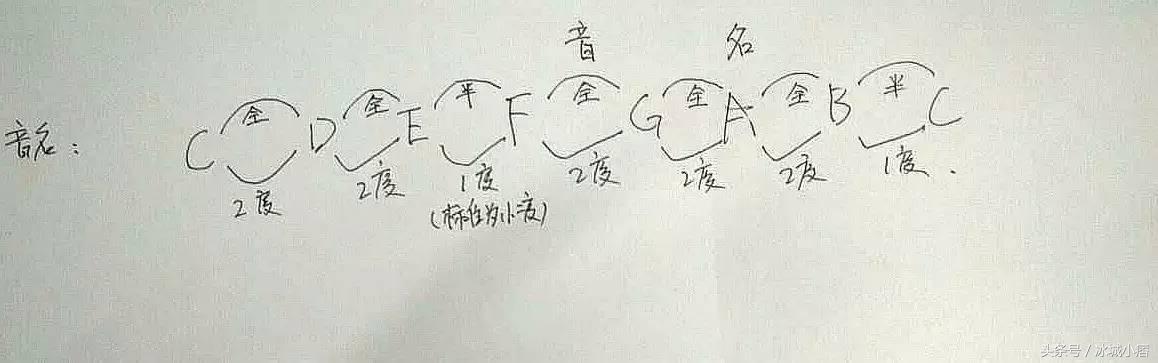 音 名
全 全 半 全 全 全 半
音名： C D E F G A B C
2度 2度 1度 2度 2度 2度 1度 .
(标准为小二度)
头条号 / 冰城小痞